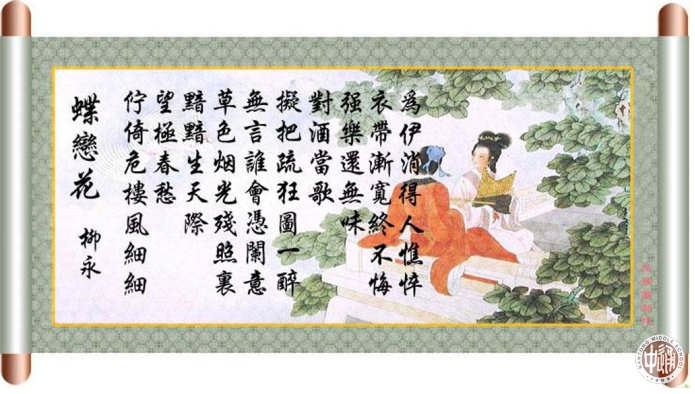 蝶戀花
柳永
佇倚危樓風細細
望極春愁
黯黯生天際
草色烟光殘照裏
無言誰會憑闌意
擬把疏狂圖一醉
對酒當歌
强樂還無味
衣帶漸寬終不悔
爲伊消得人憔悴
NANTONG MIDDLE SCHOOL